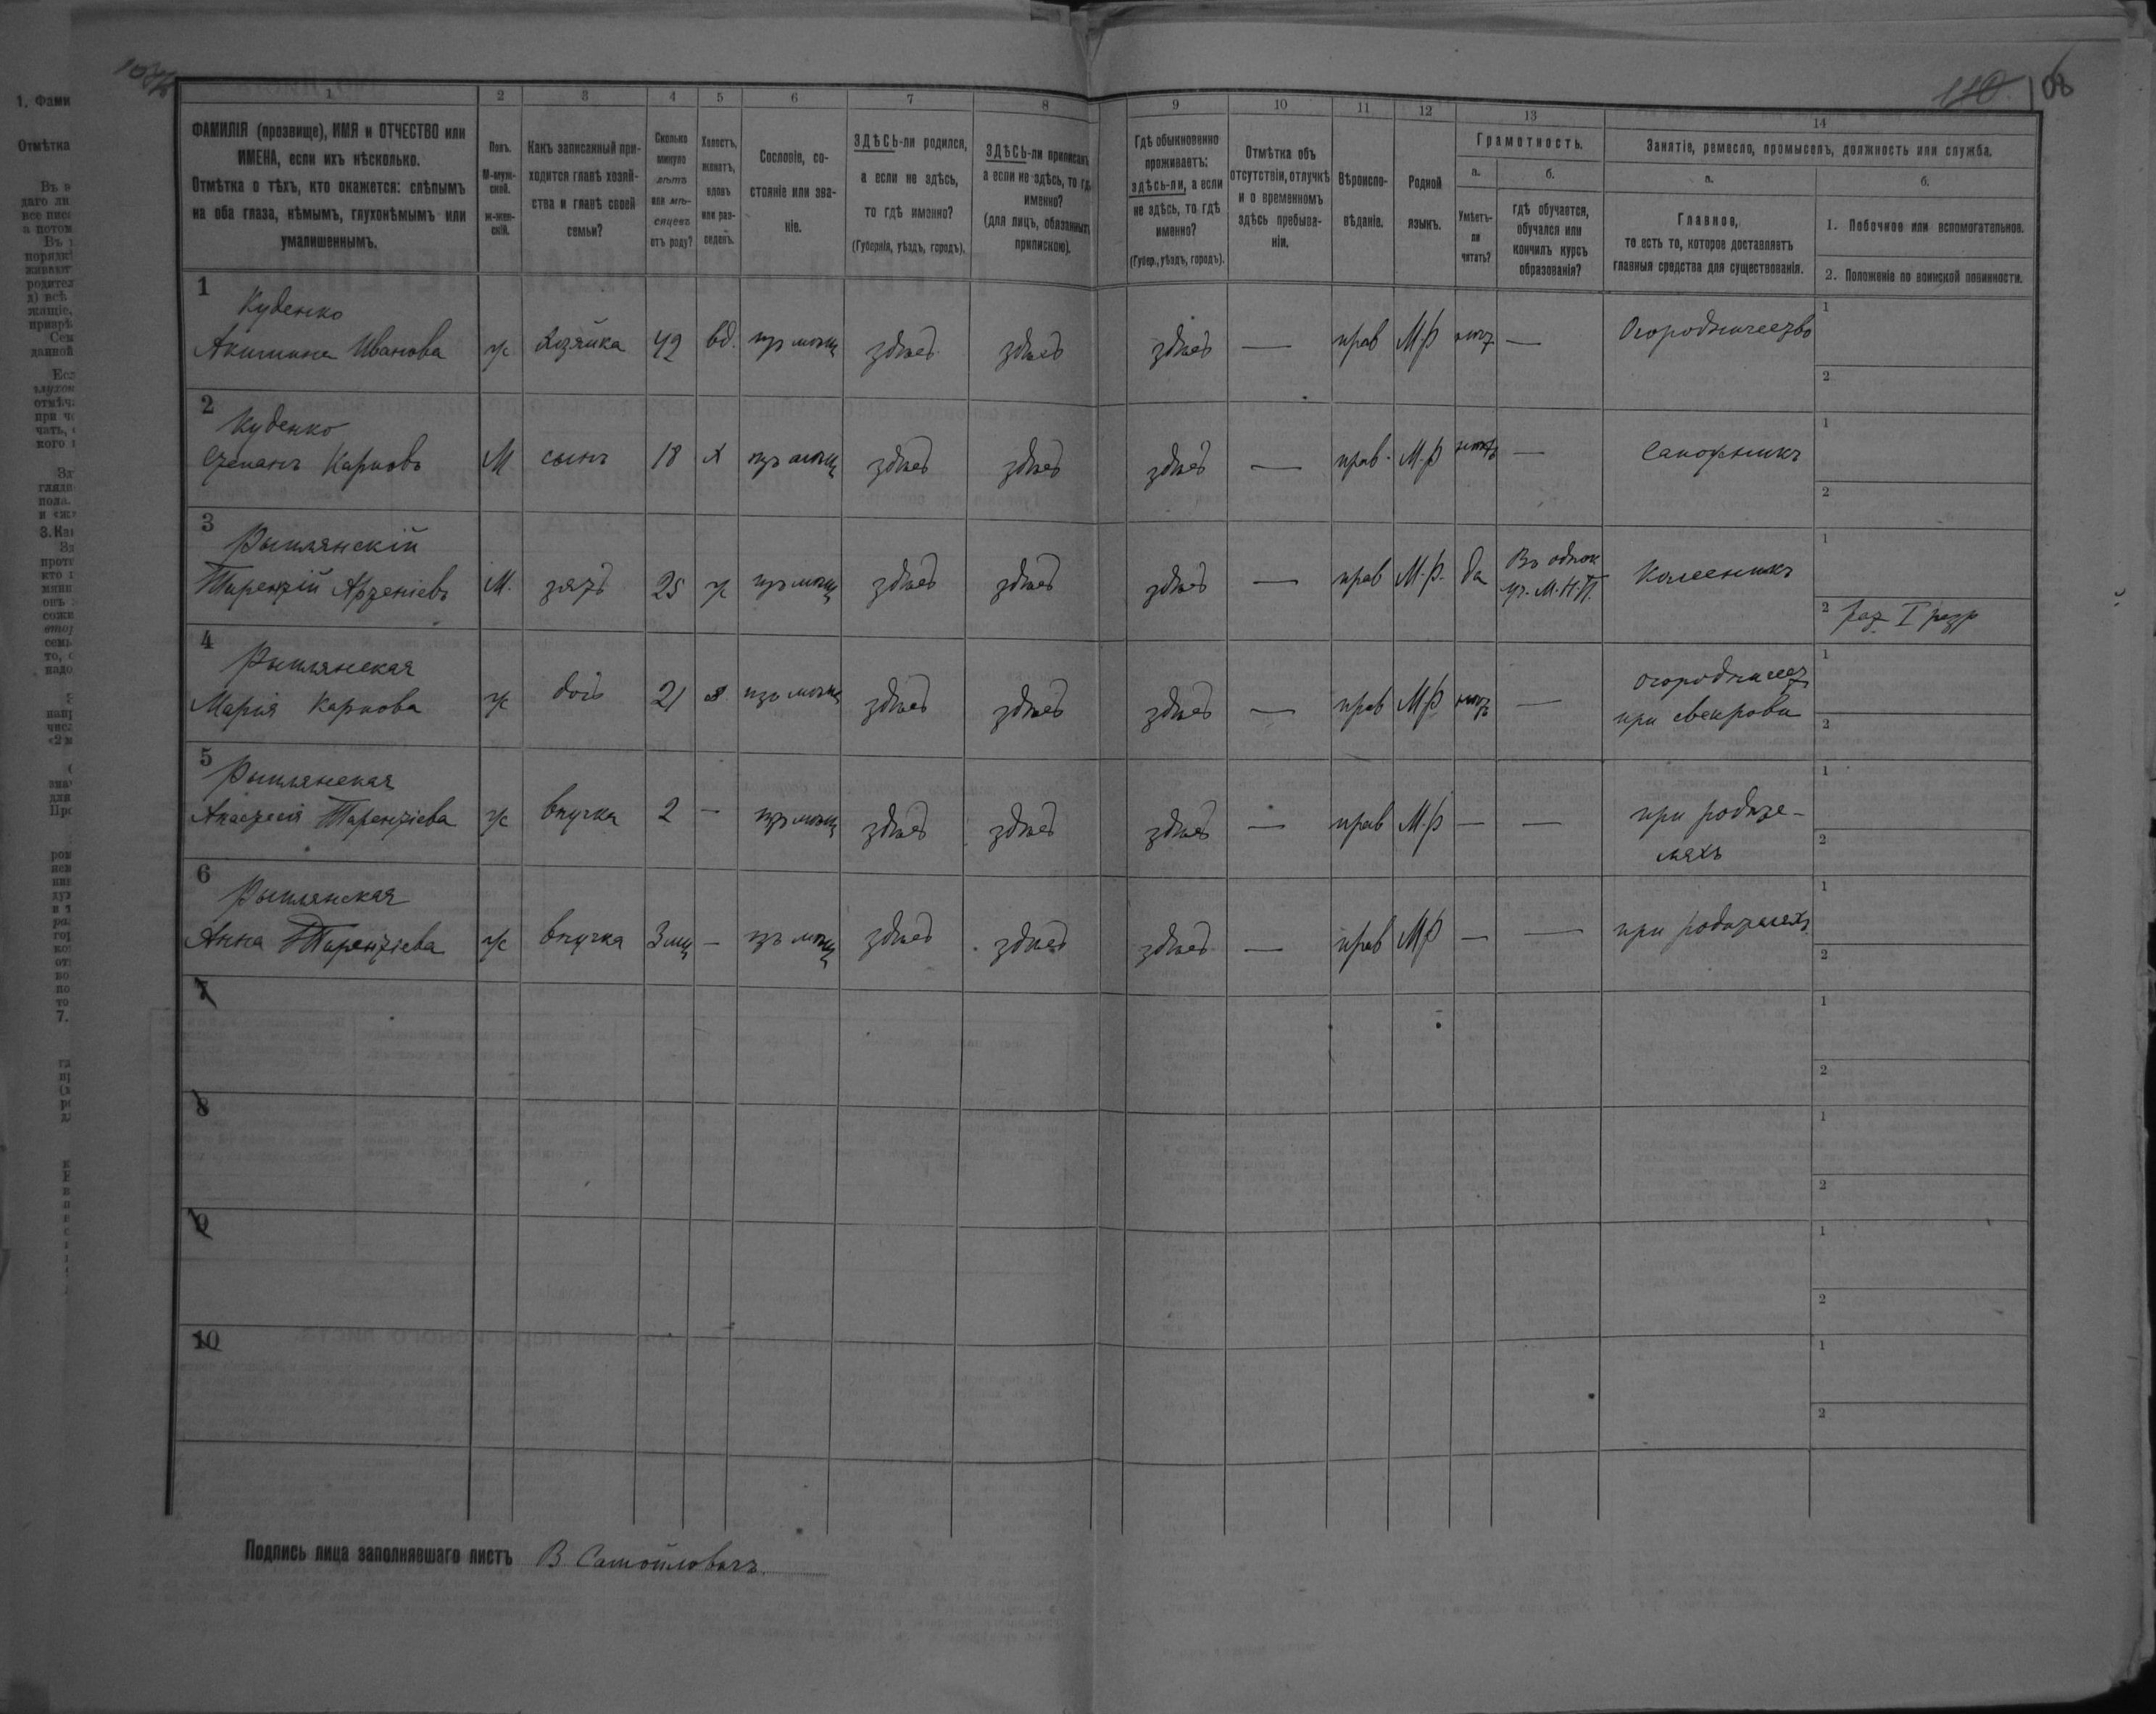 110.
1
2
3
4
5
6
7
8
9
10
11
12
13
14
ФАМИЛІЯ (прозвище), ИМЯ и ОТЧЕСТВО или
ИМЕНА, если ихъ нѣсколько.
Отмѣтка о тѣхъ, кто окажется: слѣпымъ
на оба глаза, нѣмымъ, глухонѣмымъ или
умалишеннымъ.
Полъ.
М-муж-
ской.
ж-жен-
скій.
Какъ записанный при-
ходится главѣ хозяй-
ства и главѣ своей
семьи?
Сколько
минуло
лѣтъ
или мѣ-
сяцевъ
отъ роду?
Холостъ,
женатъ,
вдовъ
или раз-
веденъ.
Сословіе, со-
стояніе или зва-
ніе.
ЗДѢСЬ-ли родился,
а если не здѣсь,
то гдѣ именно?
(Губернія, уѣздъ, городъ).
ЗДѢСЬ-ли приписанъ,
а если не здѣсь, то гдѣ
именно?
(для лицъ, обязанныхъ
припискою).
Гдѣ обыкновенно
проживаетъ:
здѣсь-ли, а если
не здѣсь, то гдѣ
именно?
(Губер., уѣздъ, городъ).
Отмѣтка объ
отсутствіи, отлучкѣ
и о временномъ
здѣсь пребыва-
ніи.
Вѣроиспо-
вѣданіе.
Родной
языкъ.
Грамотность.
а.
Умѣетъ-
ли
читать?
б.
гдѣ обучается,
обучался или
кончилъ курсъ
образованія?
Занятіе, ремесло, промыселъ, должность или служба.
а.
Главное,
то есть то, которое доставляетъ
главныя средства для существованія.
б.
1. Побочное или вспомогательное.
2. Положеніе по воинской повинности.
1
Куденко
Акимина Иванова ж Хозяйка 42 вд. изъ мѣщ здѣсь здѣсь здѣсь — прав М.Р нѣт — Огородничество
1
2
2
Куденко
Степанъ Карповъ М сынъ 18 х изъ мѣщ здѣсь здѣсь здѣсь — прав. М.Р нѣтъ — Сапожникъ
1
2
3
Рымлянскій
Терентій Арсеніевъ М. зять 25 ж изъ мѣщ здѣсь здѣсь здѣсь — прав М.Р. да Въ однок уч. М.Н.П. Колесникъ
1
2 рат. I разр
4
Рымлянская
Марія Карпова ж дочь 21 з изъ мѣщ здѣсь здѣсь здѣсь — прав М.Р нѣтъ — огородничест
при свекрови
1
2
5
Рымлянская
Анастасія Терентіева ж внучка 2 — изъ мѣщ здѣсь здѣсь здѣсь — прав М.Р — — при родите-
ляхъ
1
2
6
Рымлянская
Анна Терентіева ж внучка 3 мц — изъ мѣщ здѣсь здѣсь здѣсь — прав М.Р — — при родителяхъ
1
2
7
1
2
8
1
2
9
1
2
10
1
2
Подпись лица заполнявшаго листъ В Самойловичъ.